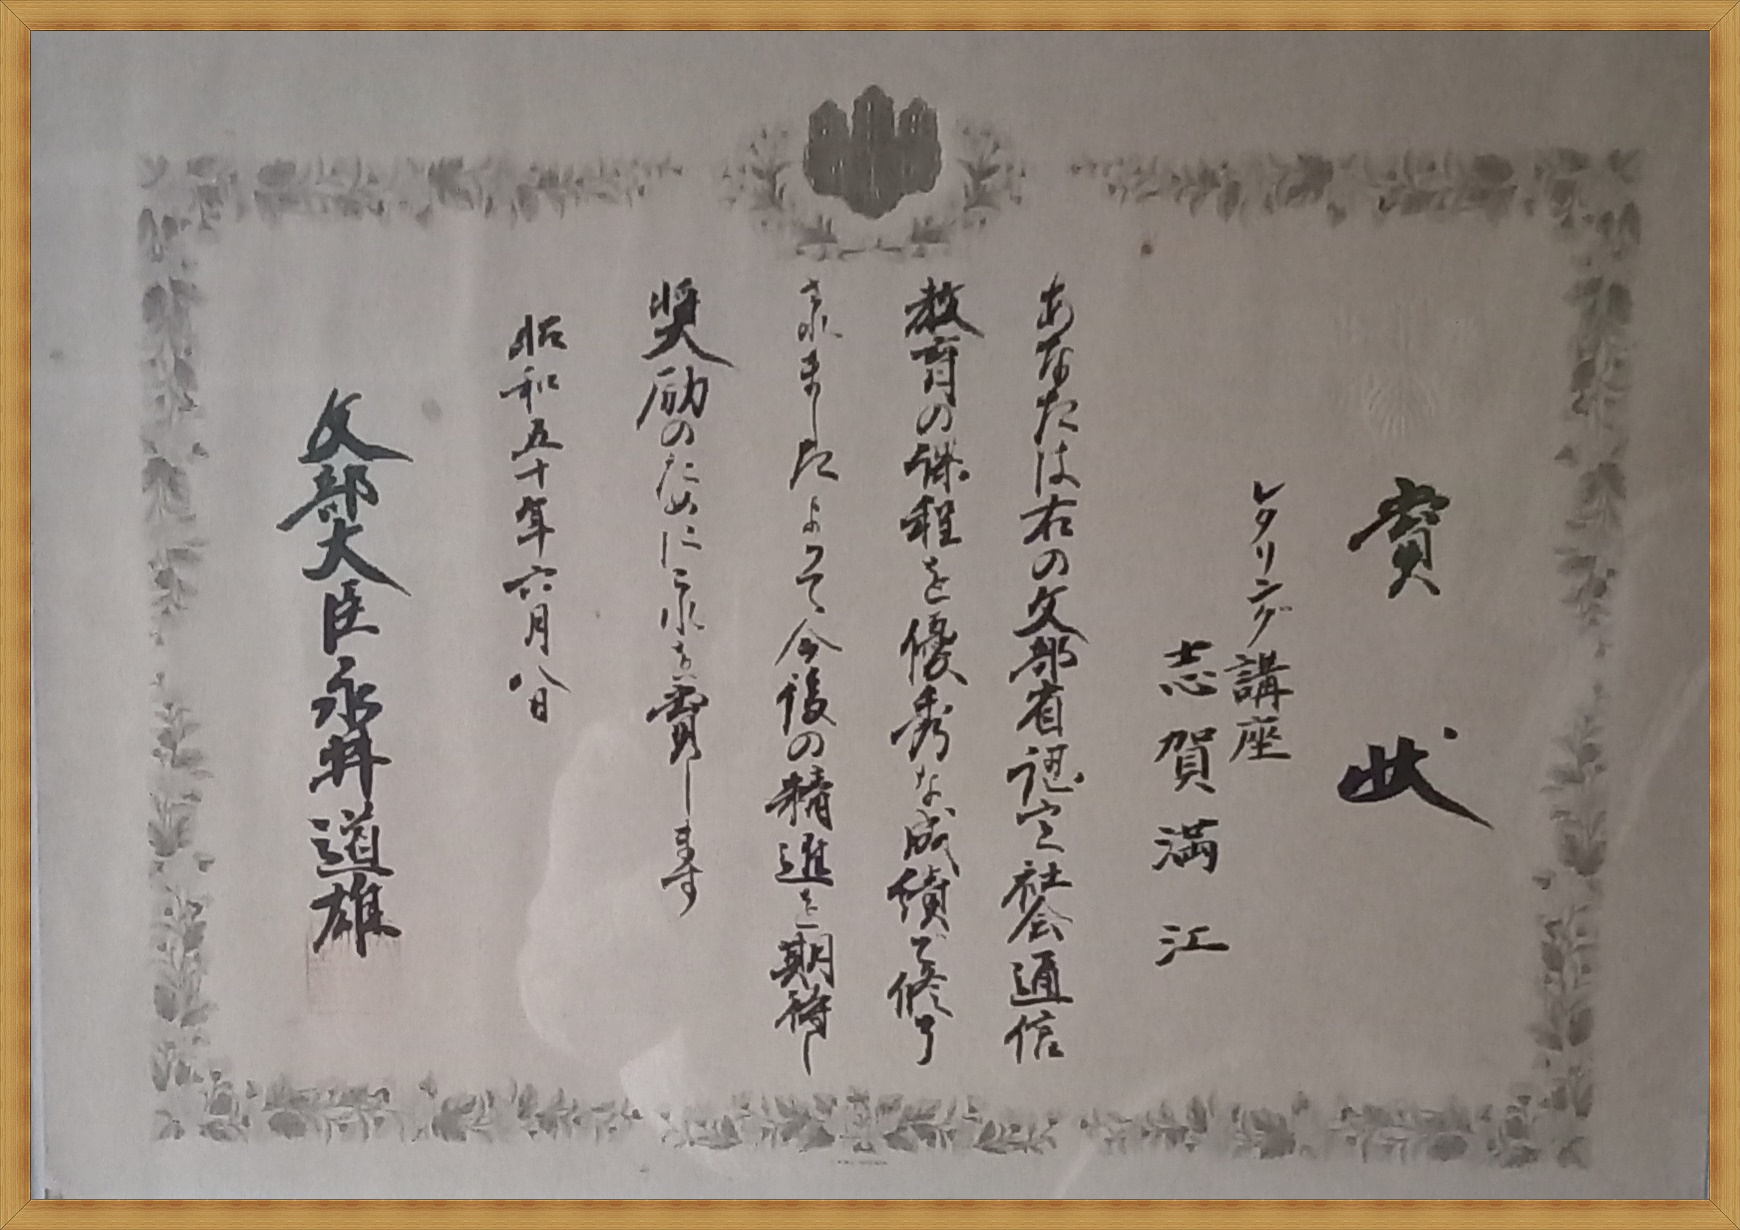 賞状
レタリング講座
志賀満江
あなたは右の文部省認定社会通信
教育の課程を優秀な成績で修了
されましたよって今後の精進を期待し
奨励のためにこれを賞します
昭和五十年六月八日
文部大臣永井道雄